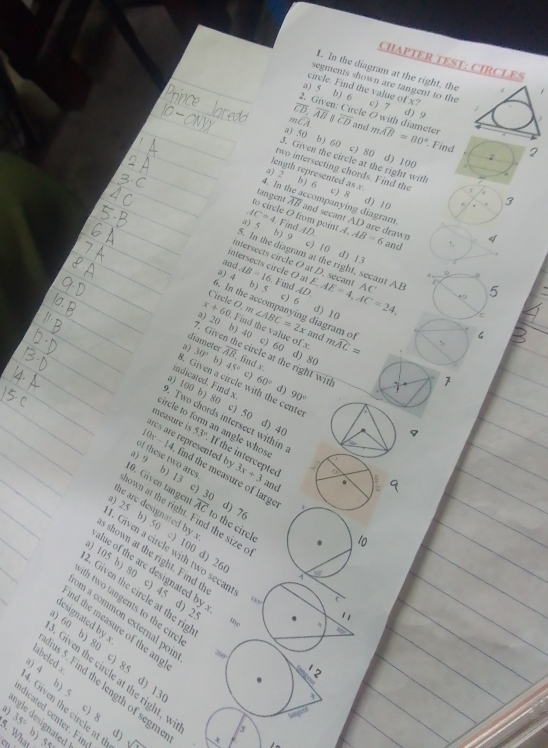 Prince
10-onyx
1 A
2 A
3. C
4 C
5. B
6 A
7 A
8 A
9. D
10. B
11. B
12. D
13. D
14. A
15. C
CHAPTER TEST: CIRCLES
1. In the diagram at the right, the
segments shown are tangent to the
circle. Find the value of x?
a) 5 b) 6 c) 7 d) 9
2. Given: Circle O with diameter
CD, AB || CD and mAB = 80°. Find
mCA
a) 50 b) 60 c) 80 d) 100
3. Given the circle at the right with
two intersecting chords. Find the
length represented as x.
a) 2 b) 6 c) 8 d) 10
4. In the accompanying diagram,
tangent AB and secant AD are drawn
to circle O from point A, AB = 6 and
AC = 4. Find AD.
a) 5 b) 9 c) 10 d) 13
5. In the diagram at the right, secant AB
intersects circle O at D, secant AC
intersects circle O at E, AE = 4, AC = 24,
and AB = 16. Find AD.
a) 4 b) 5 c) 6 d) 10
6. In the accompanying diagram of
Circle O, m∠ABC = 2x and mAC =
x + 60. Find the value of x.
a) 20 b) 40 c) 60 d) 80
7. Given the circle at the right with
diameter AB, find x.
a) 30° b) 45° c) 60° d) 90°
8. Given a circle with the center
indicated. Find x.
a) 100 b) 80 c) 50 d) 40
9. Two chords intersect within a
circle to form an angle whose
measure is 53°. If the intercepted
arcs are represented by 3x + 3 and
10x - 14, find the measure of larger
of these two arcs.
a) 9 b) 13 c) 30 d) 76
10. Given tangent AC to the circle
shown at the right. Find the size of
the arc designated by x.
a) 25 b) 50 c) 100 d) 260
11. Given a circle with two secants
as shown at the right. Find the
value of the arc designated by x.
a) 105 b) 80 c) 45 d) 25
12. Given the circle at the right
with two tangents to the circle
from a common external point.
Find the measure of the angle
designated by x.
a) 60 b) 80 c) 85 d) 130
13. Given the circle at the right, with
radius 5. Find the length of segment
labeled x.
a) 4 b) 5 c) 8 d)
14. Given the circle at the
indicated center. Find
angle designated
a) 35° b) 55
15. What
2
3
4
5
6
7
9
10
11
12